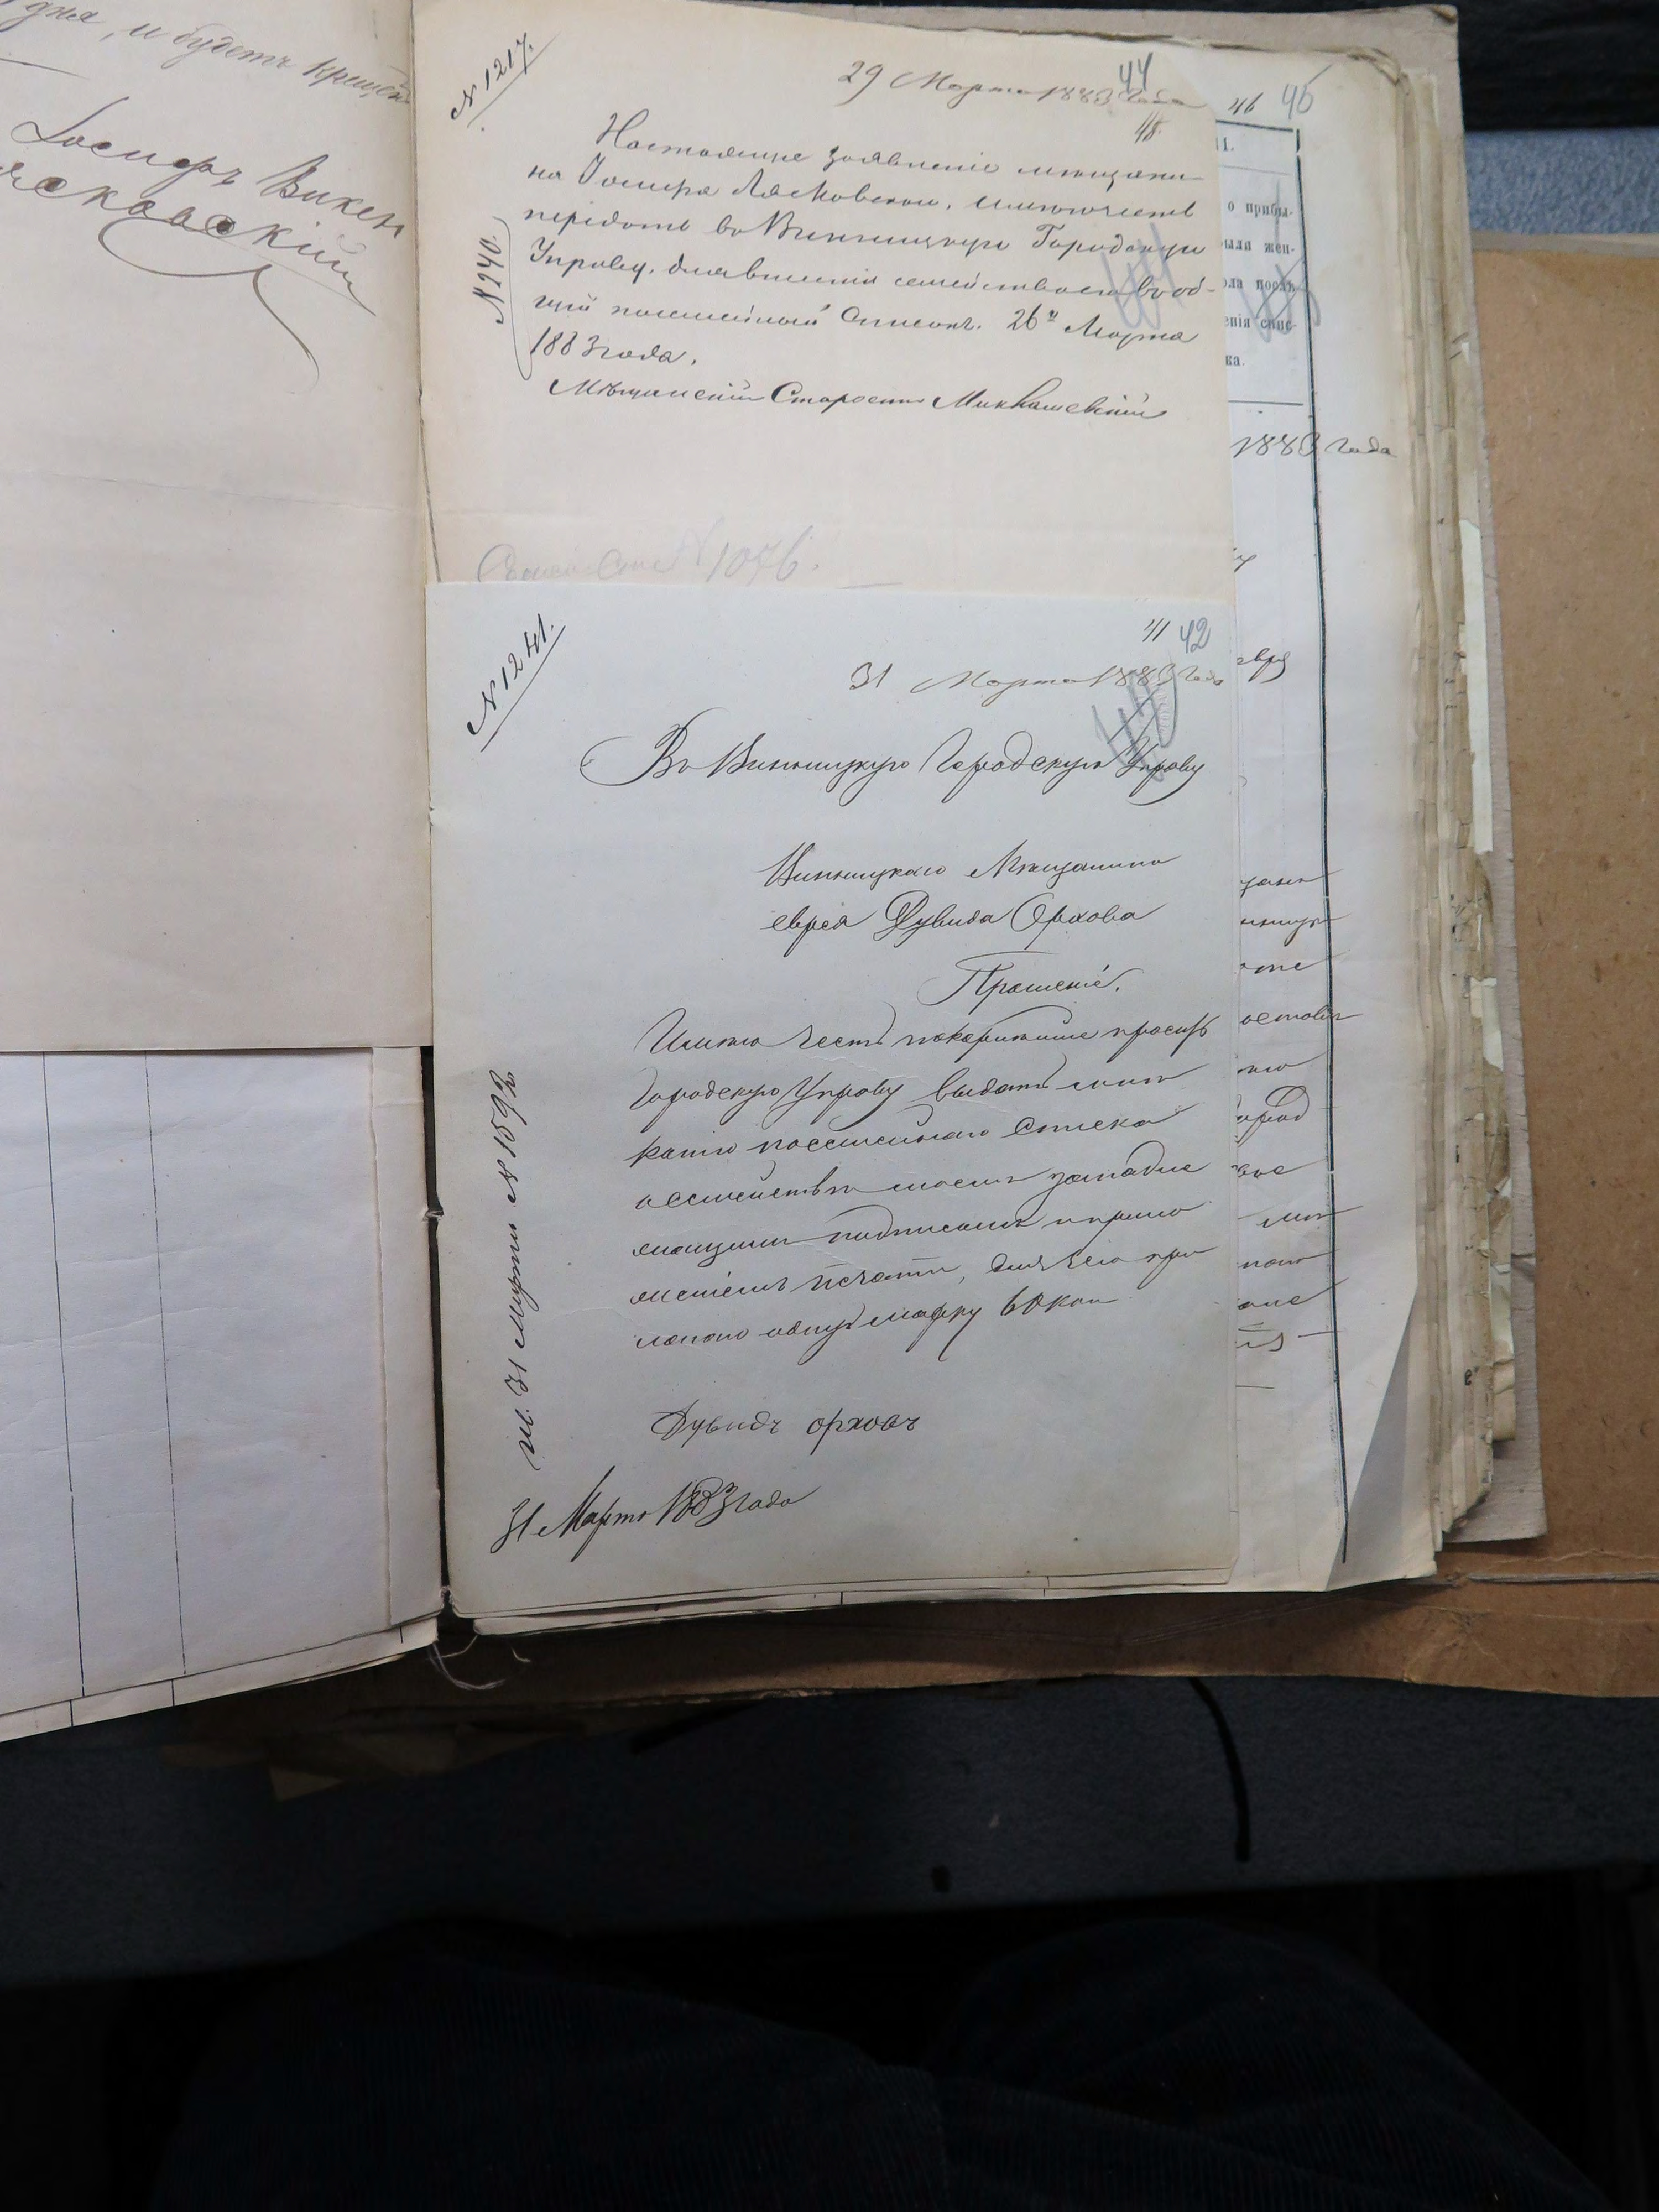 дня, и будетъ
Іосифъ Викен
сковскій
N 1217.
29 Марта 1883 Года
44
Настоящее заявленіе мѣщани-
на Іосифа Лясковскаго, имѣю честь
передать въ Винницкую Городскую
Управу, для внесенія семейства его въ об-
щій посемейный списокъ. 26го Марта
1883 года.
Мѣщанскій Староста
N 240.
N 1076.
46 45
1.
о прибы-
ыла жен-
ола послѣ
енія спис-
ка.
1883 Года
N 1241.
41 42
31 Марта 1883 Года
Въ Винницкую Городскую Управу
Винницкаго Мѣщанина
еврея Дувида Орхова
Прошеніе.
Имѣю честь покорнѣйше просить
Городскую Управу выдать мнѣ
копію посемейнаго списка
о семействѣ моемъ за надле
жащимъ подписомъ и прило
женіемъ печати, для чего при
лагаю одну марку 60 коп
Дувидъ орховъ
31 Марта 1883 года
31 Марта N 1592